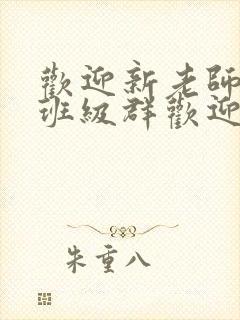 歡迎新老師
班級群歡迎
朱重八